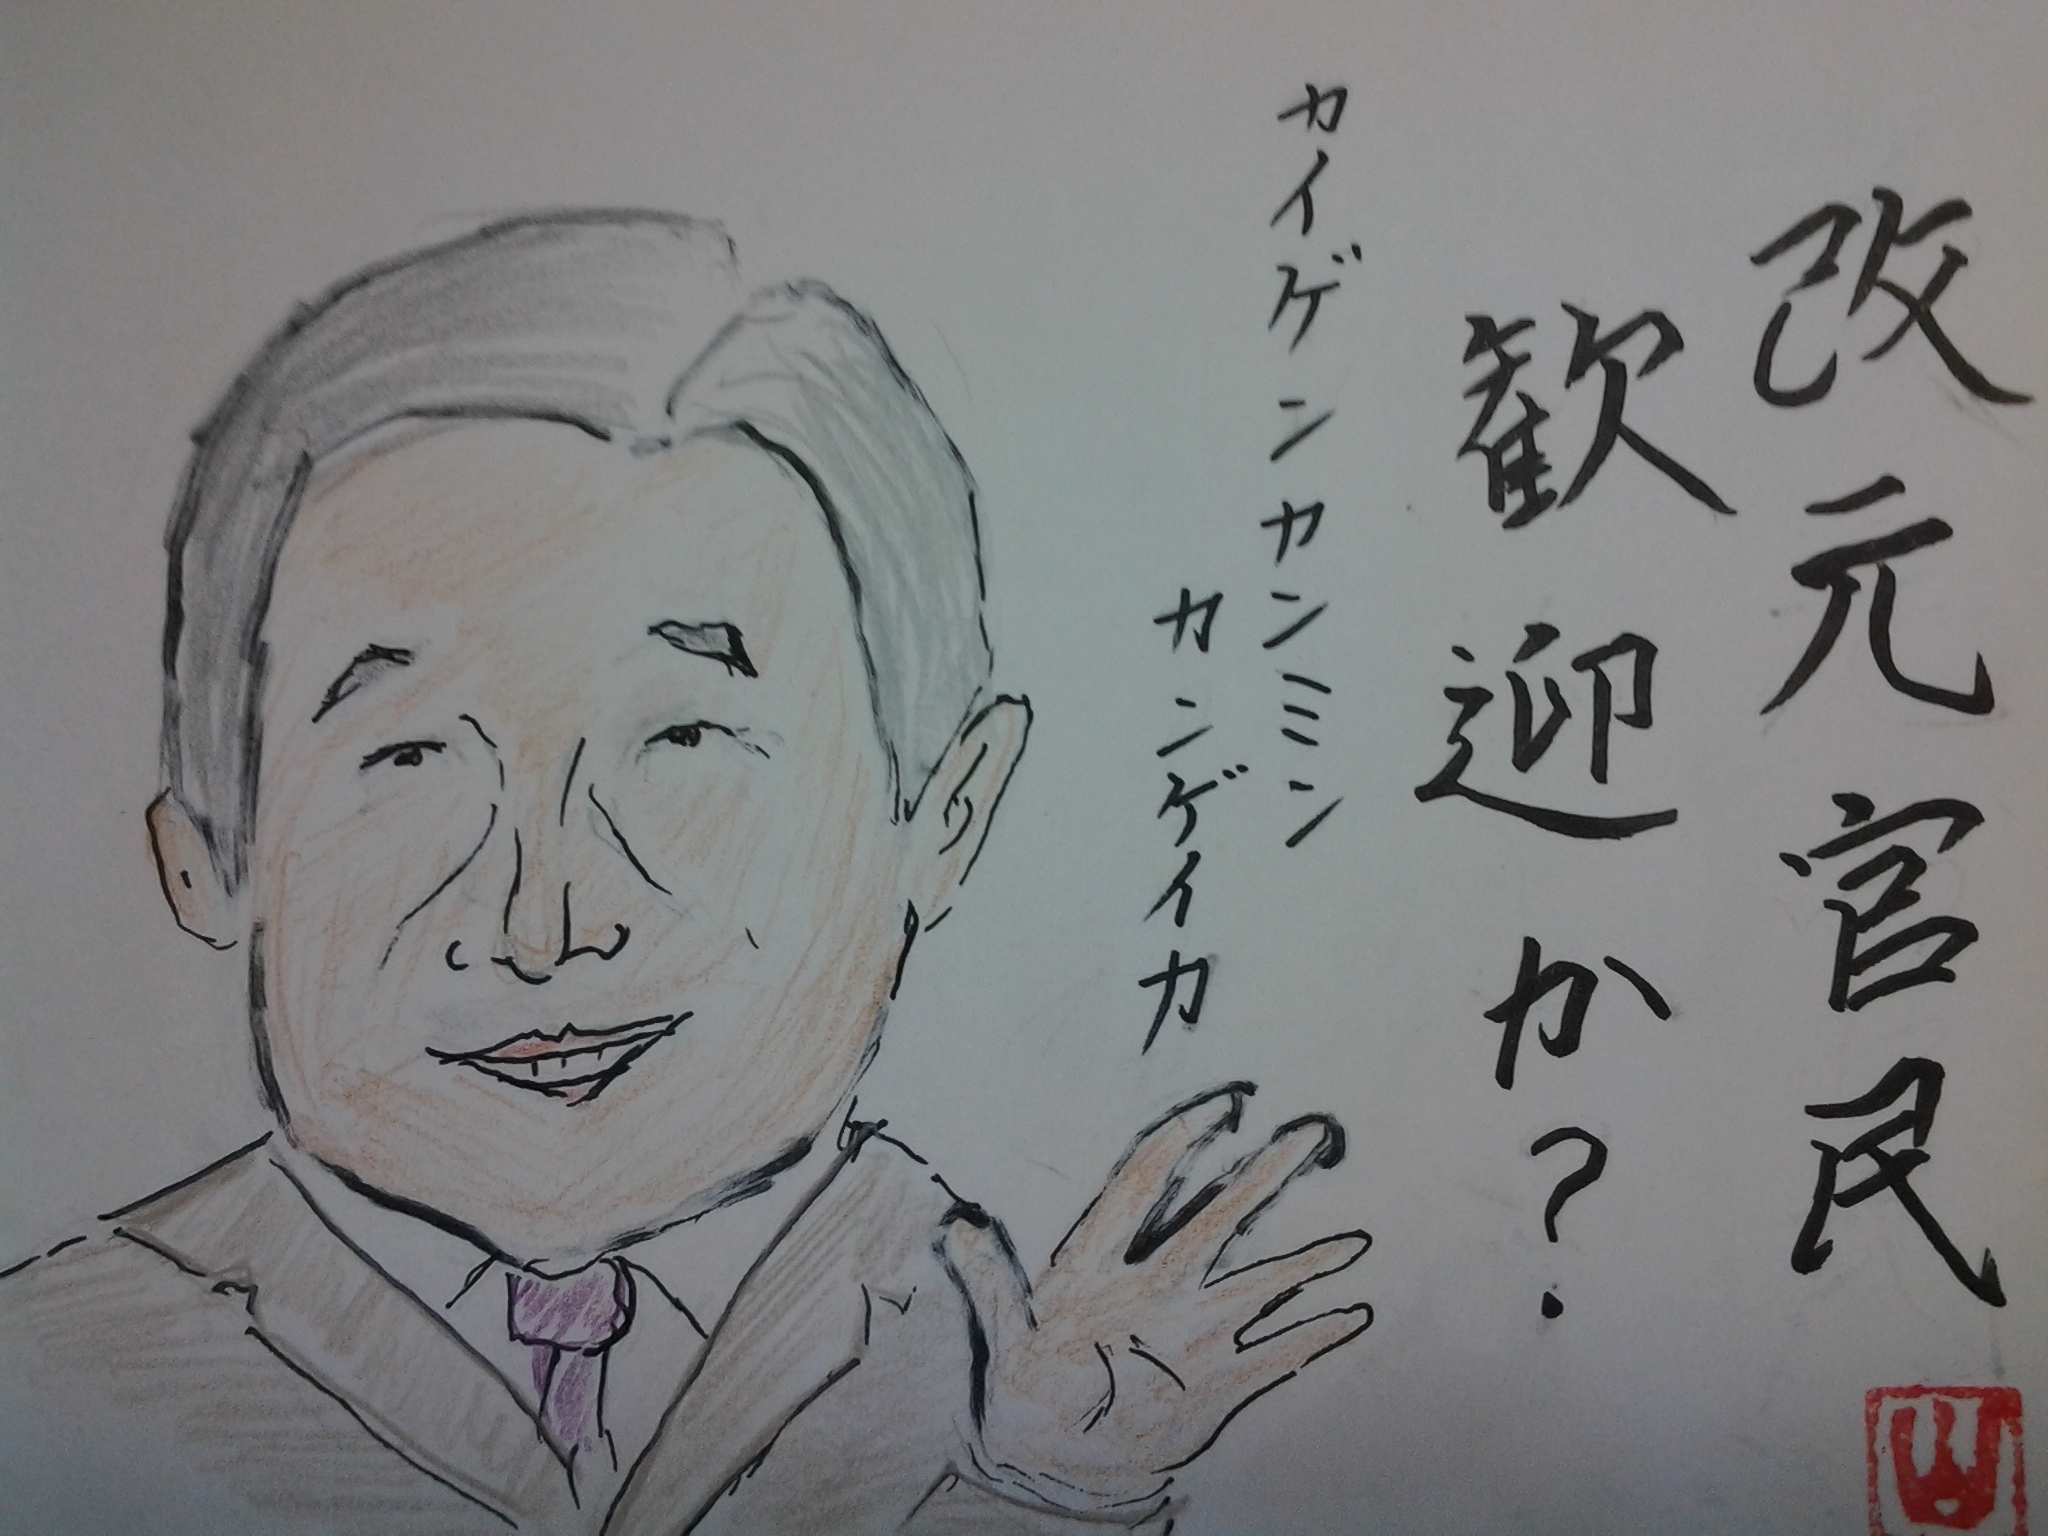 改元官民
歓迎か?
カイゲンカンミン
カンゲイカ